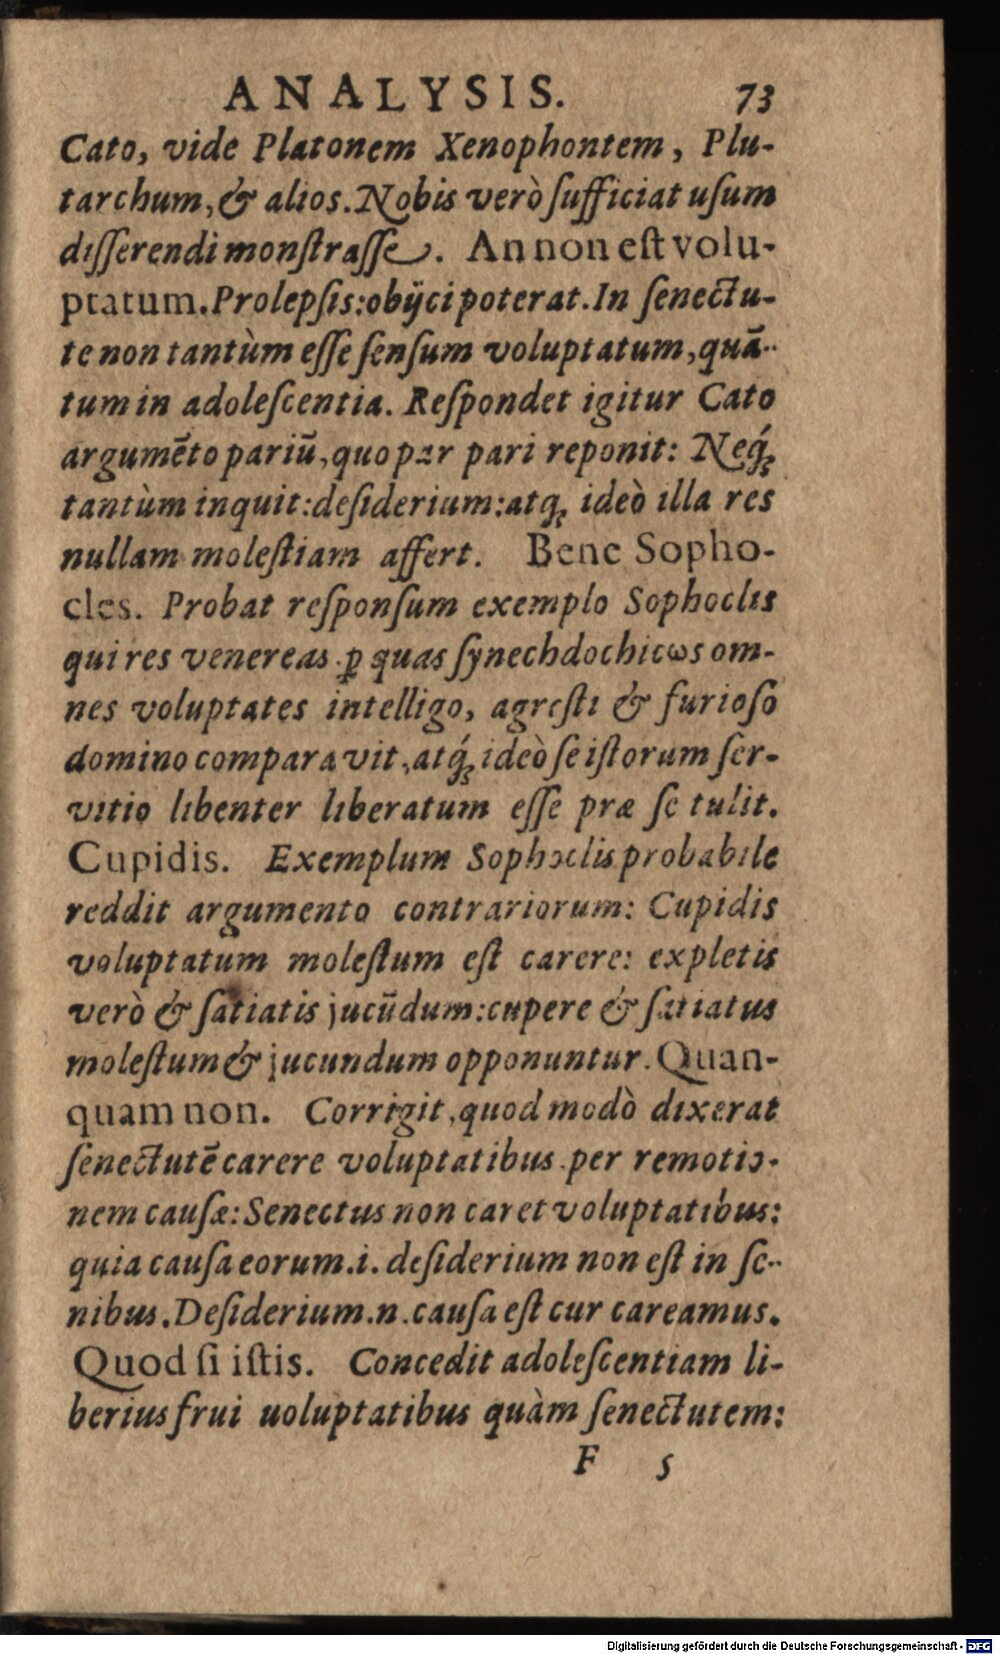 ANALYSIS. 73
Cato, vide Platonem Xenophontem, Plu-
tarchum, & alios. Nobis verò ſufficiat uſum
diſſerendi monſtraſſe. An non eſt volu-
ptatum. Prolepſis: obijci poterat. In ſenectu-
te non tantùm eſſe ſenſum voluptatum, quā-
tum in adoleſcentia. Reſpondet igitur Cato
argumēto pariū, quo par pari reponit: Neq́;
tantùm inquit: deſiderium: atq; ideò illa res
nullam moleſtiam affert. Bene Sopho-
cles. Probat reſponſum exemplo Sophoclis
qui res venereas. ꝑ quas ſynechdochicωs om-
nes voluptates intelligo, agreſti & furioſo
domino comparavit, atq́; ideò ſe iſtorum ſer-
vitio libenter liberatum eſſe præ ſe tulit.
Cupidis. Exemplum Sophoclis probabile
reddit argumento contrariorum: Cupidis
voluptatum moleſtum eſt carere: expletis
verò & ſatiatis jucūdum: cupere & ſatiatus
moleſtum & jucundum opponuntur. Quan-
quam non. Corrigit, quod modò dixerat
ſenectutē carere voluptatibus. per remotio-
nem cauſæ: Senectus non caret voluptatibus:
quia cauſa eorum. i. deſiderium non eſt in ſe-
nibus. Deſiderium. n. cauſa eſt cur careamus.
Quod ſi iſtis. Concedit adoleſcentiam li-
berius frui uoluptatibus quàm ſenectutem:
F 5
Digitalisierung gefördert durch die Deutsche Forschungsgemeinschaft - DFG